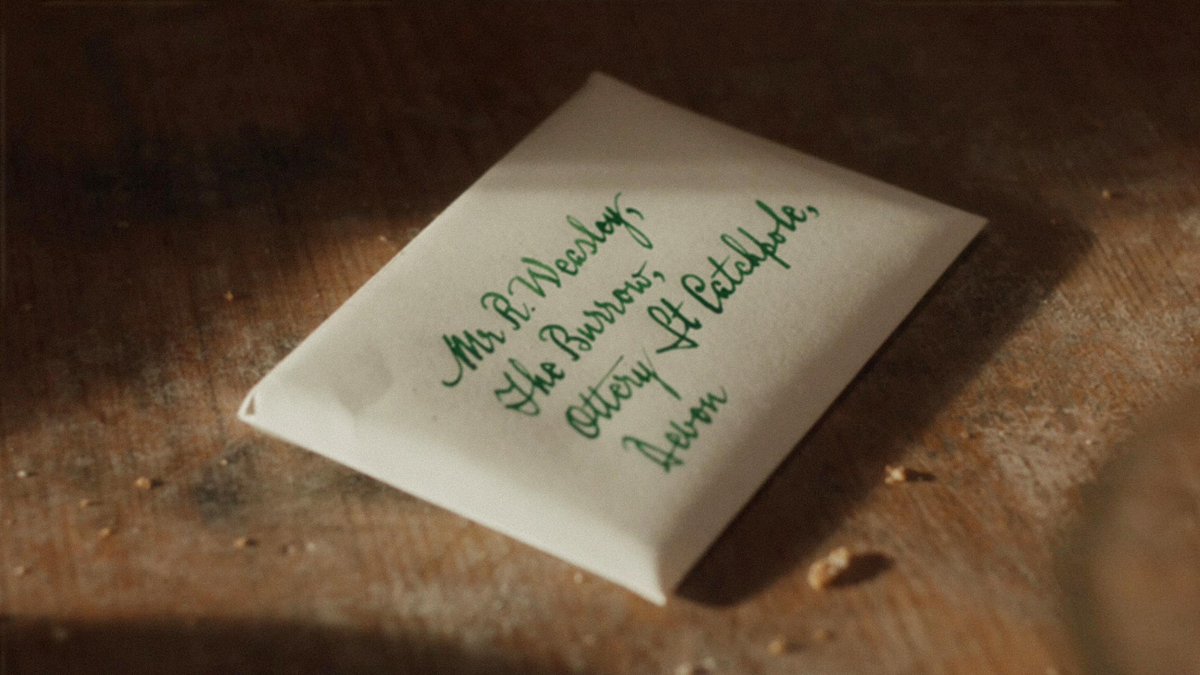 Mr R. Weasley,
The Burrow,
Ottery St Catchpole,
Devon